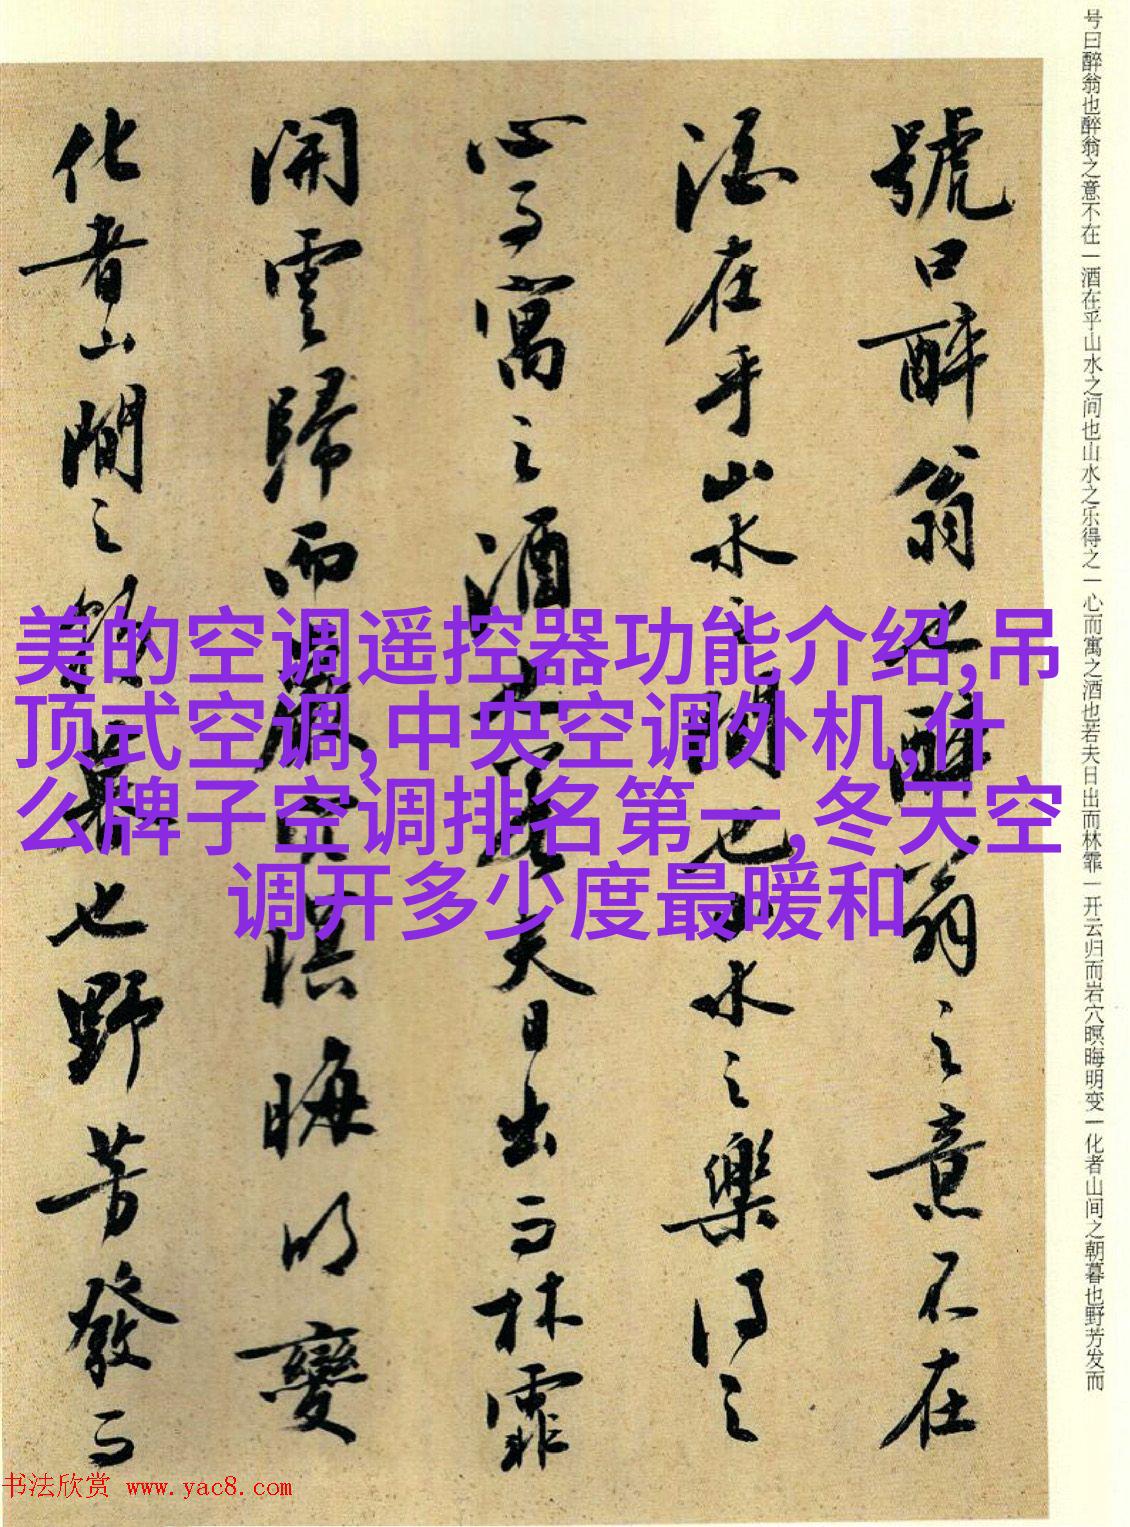 号曰醉翁也醉翁之意不在一酒在乎山水之间也山水之乐得之一心而寓之酒也若夫日出而林霏一开云归而岩穴暝晦明变一化者山间之朝暮也野芳发而
號曰醉翁也醉翁之意不在
酒在乎山水之間也山水之樂得之
心而寓之酒也若夫日出而林霏
開雲歸而巖穴暝晦明變
化者山間之朝暮也野芳發而
美的空调遥控器功能介绍,吊
顶式空调,中央空调外机,什
么牌子空调排名第一,冬天空
调开多少度最暖和
书法欣赏 www.yac8.com